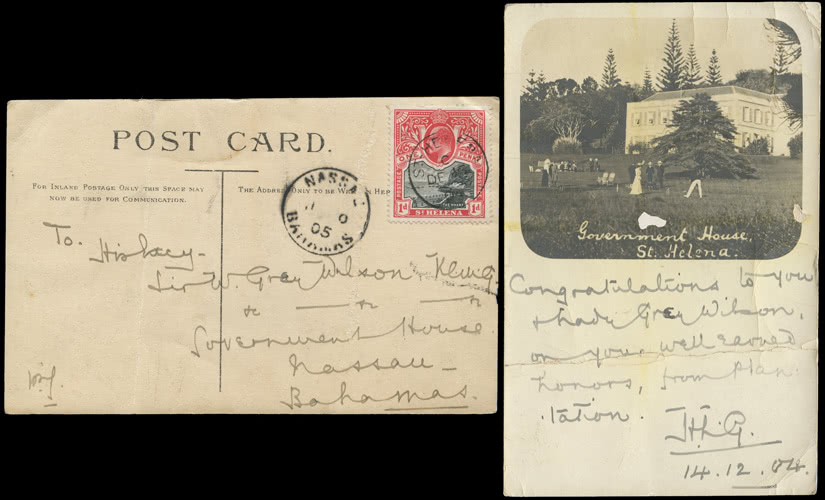 POST CARD.
FOR INLAND POSTAGE ONLY THIS SPACE MAY
NOW BE USED FOR COMMUNICATION.
THE ADDRESS ONLY TO BE WRITTEN HERE
NASSAU
05
BAHAMAS
POSTAGE
1d ST HELENA 1d
To. His Excy-
Sir W. Grey Wilson K.C.M.G.
&c &c &c
Government House.
Nassau-
Bahamas.
Government House,
St. Helena.
Congratulations to you
& Lady Grey Wilson,
on your well earned
honors, from Plan-
tation.
H.L.G.
14.12.04.